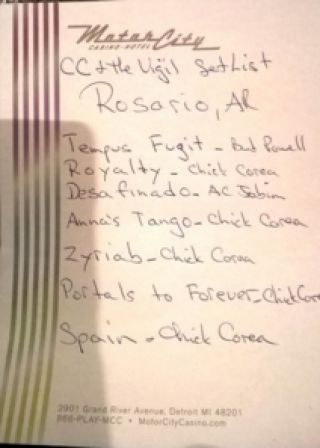 MotorCity
CASINO-HOTEL
CC & the Vigil Set List
Rosario, AR
Tempus Fugit - Bud Powell
Royalty - Chick Corea
Desafinado - AC Jobim
Anna's Tango - Chick Corea
Zyriab - Chick Corea
Portals to Forever - Chick Corea
Spain - Chick Corea
2901 Grand River Avenue, Detroit MI 48201
866-PLAY-MCC • MotorCityCasino.com